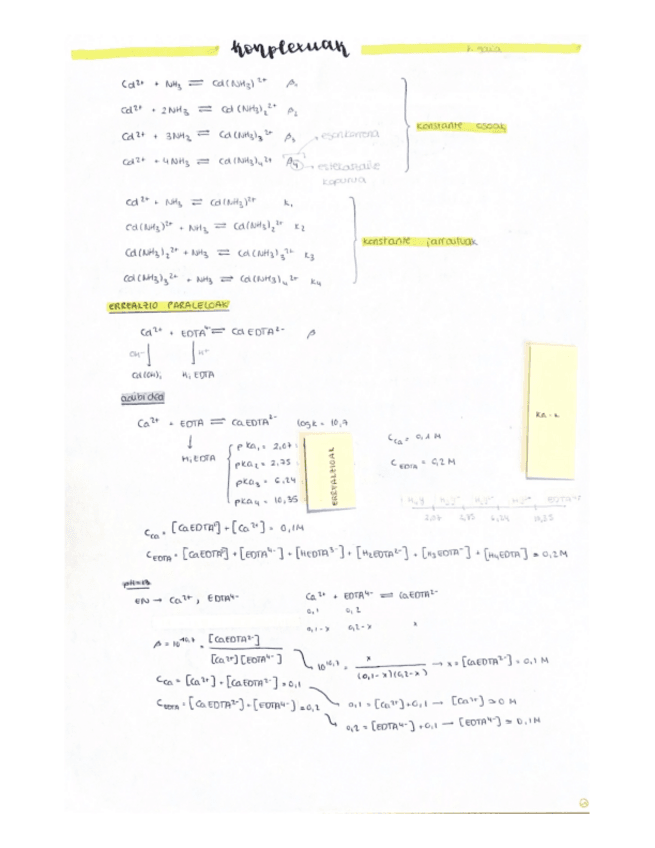 Konplexuak
Cd²⁺ + NH₃ ⇌ Cd(NH₃)²⁺ β₁
Cd²⁺ + 2NH₃ ⇌ Cd(NH₃)₂²⁺ β₂
Cd²⁺ + 3NH₃ ⇌ Cd(NH₃)₃²⁺ β₃
Cd²⁺ + 4NH₃ ⇌ Cd(NH₃)₄²⁺ β₄
konstante osoak
kopurua
Cd²⁺ + NH₃ ⇌ Cd(NH₃)²⁺ K₁
Cd(NH₃)²⁺ + NH₃ ⇌ Cd(NH₃)₂²⁺ K₂
Cd(NH₃)₂²⁺ + NH₃ ⇌ Cd(NH₃)₃²⁺ K₃
Cd(NH₃)₃²⁺ + NH₃ ⇌ Cd(NH₃)₄²⁺ K₄
konstante jarraituak
ERREAKZIO PARALELOAK
Cd²⁺ + EDTA⁴⁻ ⇌ CdEDTA²⁻ β
OH⁻ H⁺
Cd(OH)ᵢ HᵢEDTA
adibidea
Ca²⁺ + EDTA ⇌ CaEDTA²⁻ logK = 10,7
HᵢEDTA
pKa₁ = 2,07
pKa₂ = 2,75
pKa₃ = 6,24
pKa₄ = 10,35
ERREAKZIOAK
C_Ca = 0,1 M
C_EDTA = 0,2 M
2,07 2,75 6,24 10,35
C_Ca = [CaEDTA²⁻] + [Ca²⁺] = 0,1M
C_EDTA = [CaEDTA²⁻] + [EDTA⁴⁻] + [HEDTA³⁻] + [H₂EDTA²⁻] + [H₃EDTA⁻] + [H₄EDTA] = 0,2M
EN → Ca²⁺, EDTA⁴⁻
Ca²⁺ + EDTA⁴⁻ ⇌ CaEDTA²⁻
0,1 0,2
0,1-x 0,2-x x
β = 10^10,7 = [CaEDTA²⁻] / [Ca²⁺][EDTA⁴⁻]
10^10,7 = x / (0,1-x)(0,2-x) → x = [CaEDTA²⁻] = 0,1 M
C_Ca = [Ca²⁺] + [CaEDTA²⁻] = 0,1
0,1 = [Ca²⁺] + 0,1 → [Ca²⁺] ≃ 0 M
C_EDTA = [CaEDTA²⁻] + [EDTA⁴⁻] = 0,2
0,2 = [EDTA⁴⁻] + 0,1 → [EDTA⁴⁻] ≃ 0,1M